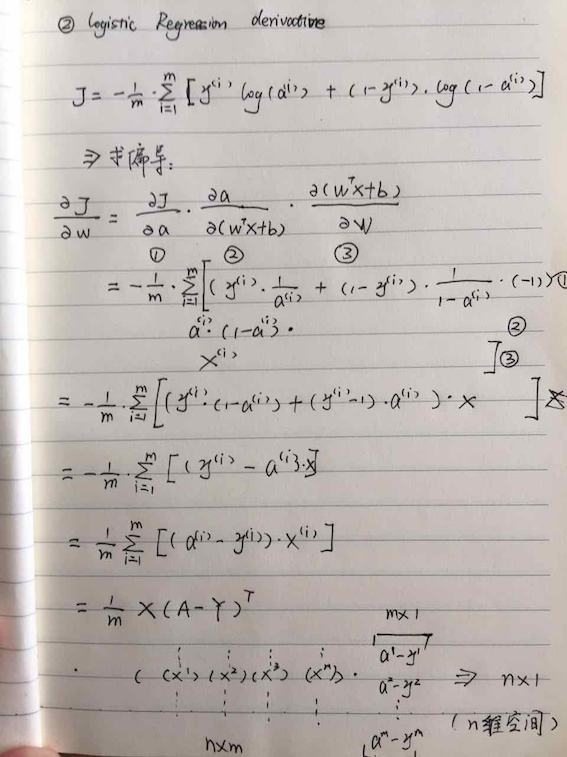 ② Logistic Regression derivative
J = -1/m · Σ_{i=1}^{m} [y^{(i)} log(a^{(i)}) + (1-y^{(i)}) · log(1-a^{(i)})]
⇒ 求偏导:
∂J/∂w = ∂J/∂a · ∂a/∂(w^T x+b) · ∂(w^T x+b)/∂w
① ② ③
= -1/m · Σ_{i=1}^{m} [(y^{(i)} · 1/a^{(i)} + (1-y^{(i)}) · 1/(1-a^{(i)}) · (-1)) ①
a^{(i)} · (1-a^{(i)}) · ②
x^{(i)} ] ③
= -1/m · Σ_{i=1}^{m} [(y^{(i)} · (1-a^{(i)}) + (y^{(i)}-1) · a^{(i)}) · x ]
= -1/m · Σ_{i=1}^{m} [(y^{(i)} - a^{(i)}) · x]
= 1/m Σ_{i=1}^{m} [(a^{(i)} - y^{(i)}) · x^{(i)}]
= 1/m X(A-Y)^T
m×1
( (x^1) (x^2) (x^3) (x^m) ) · a^1-y^1
a^2-y^2 ⇒ n×1
⋮
a^m-y^m (n维空间)
n×m